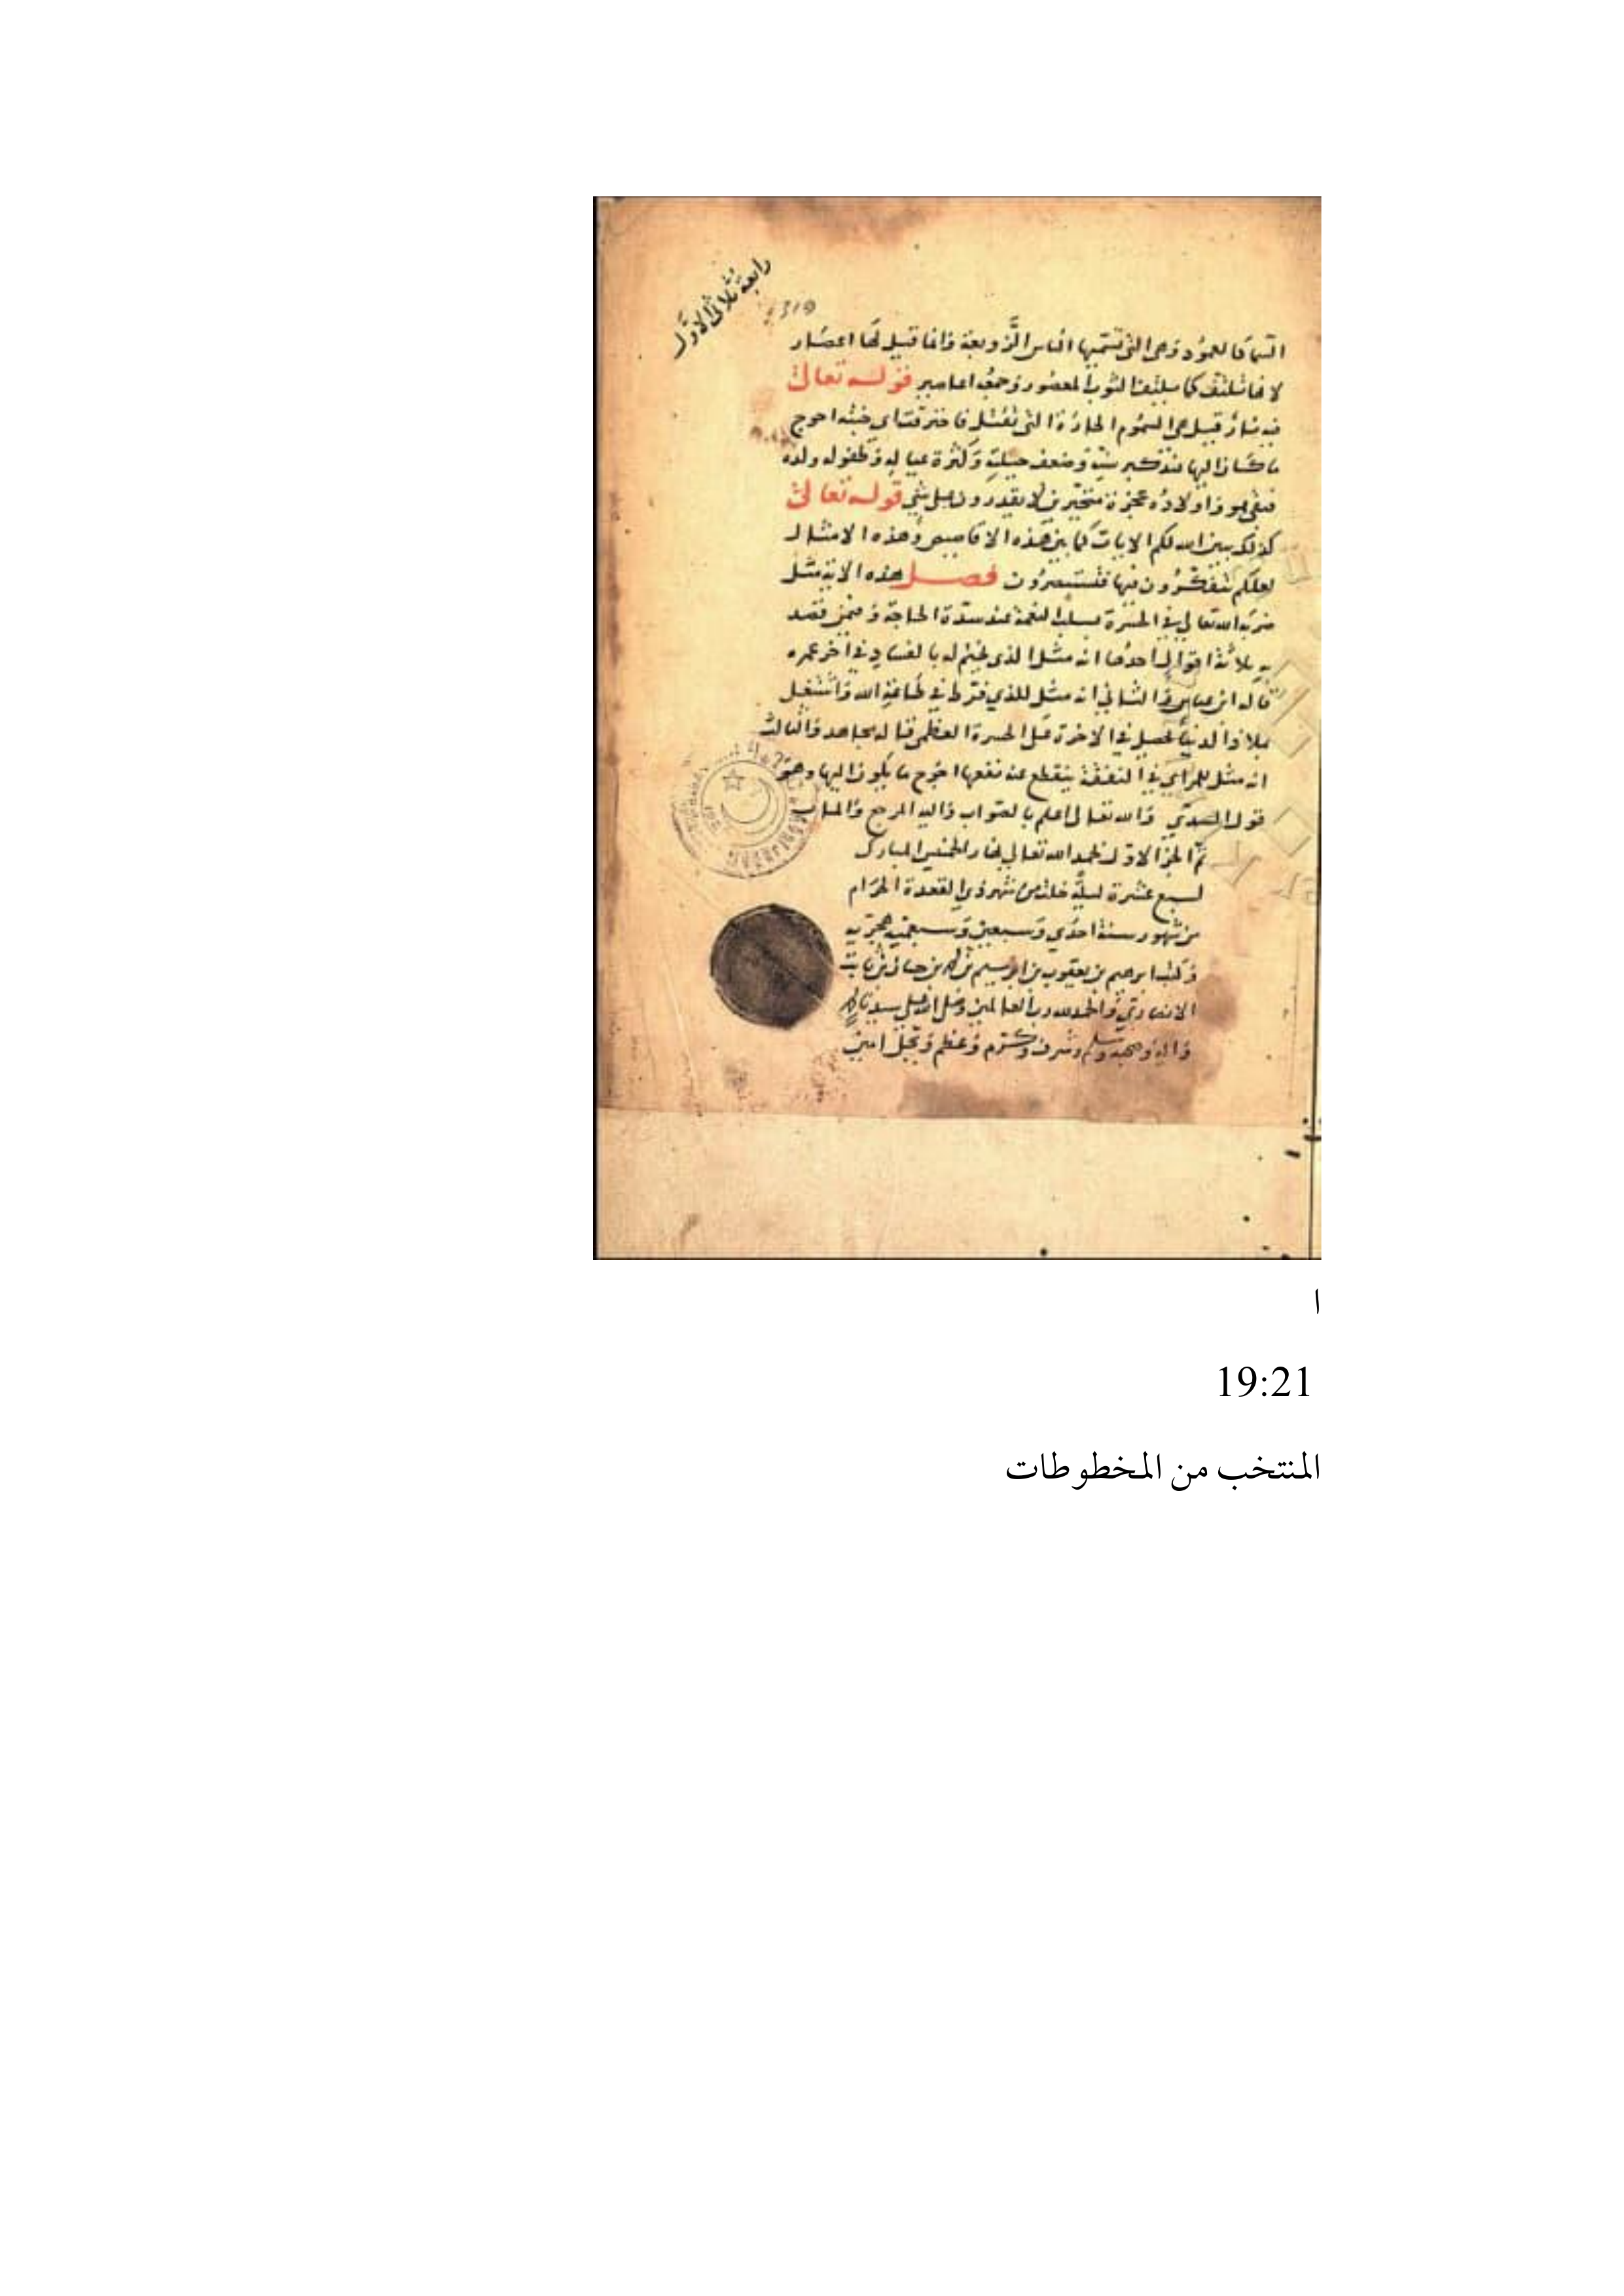 رابعة ثلاثي الاول
319
السما كالعمود وهي التي تسميها الناس الزوبعة وانما قيل لها اعصار
لانها تلتف كما يلتف الثوب المعصور وجمعه اعاصير قوله تعالى
فيه نار قيل هي السموم الحارة التي تقتل فاحترقت اي جنته احوج
ما كان اليها عند كبر سنه وضعف حيلته وكثرة عياله وطفوله ولده
فبقي هو واولاده عجزة متحيرين لا يقدرون على شي قوله تعالى
كذلك يبين الله لكم الايات كما بين هذه الاقاصيص وهذه الامثال
لعلكم تتفكرون فيها فتستبصرون فصل هذه الاية مثل
ضربه الله تعالى في الحسرة بسلب النعمة عند شدة الحاجة فيمن قصد
به ثلاثة اقوال احدها انه مثل الذي يختم له بالفساد في اخر عمره
قاله ابن عباس والثاني انه مثل للذي فرط في طاعة الله واشتغل
بملاذ الدنيا يحصل في الاخرة على الحسرة العظمى قاله مجاهد والثالث
انه مثل للمرائي في النفقة ينقطع عنه نفعها احوج ما يكون اليها وهو
قول السدي والله تعالى اعلم بالصواب واليه المرجع والماب
تم الجزء الاول بحمد الله تعالى نهار الخميس المبارك
لسبع عشرة ليلة خلت من شهر ذي القعدة الحرام
من شهور سنة احدي وسبعين وسبعمئة هجرية
وكتب ابرهيم بن يعقوب بن ابرهيم بن
الانصاري والحمد لله رب العالمين وصلى الله على سيدنا محمد
واله وصحبه وسلم وشرف وكرم وعظم وبجل امين
ا
19:21
المنتخب من المخطوطات